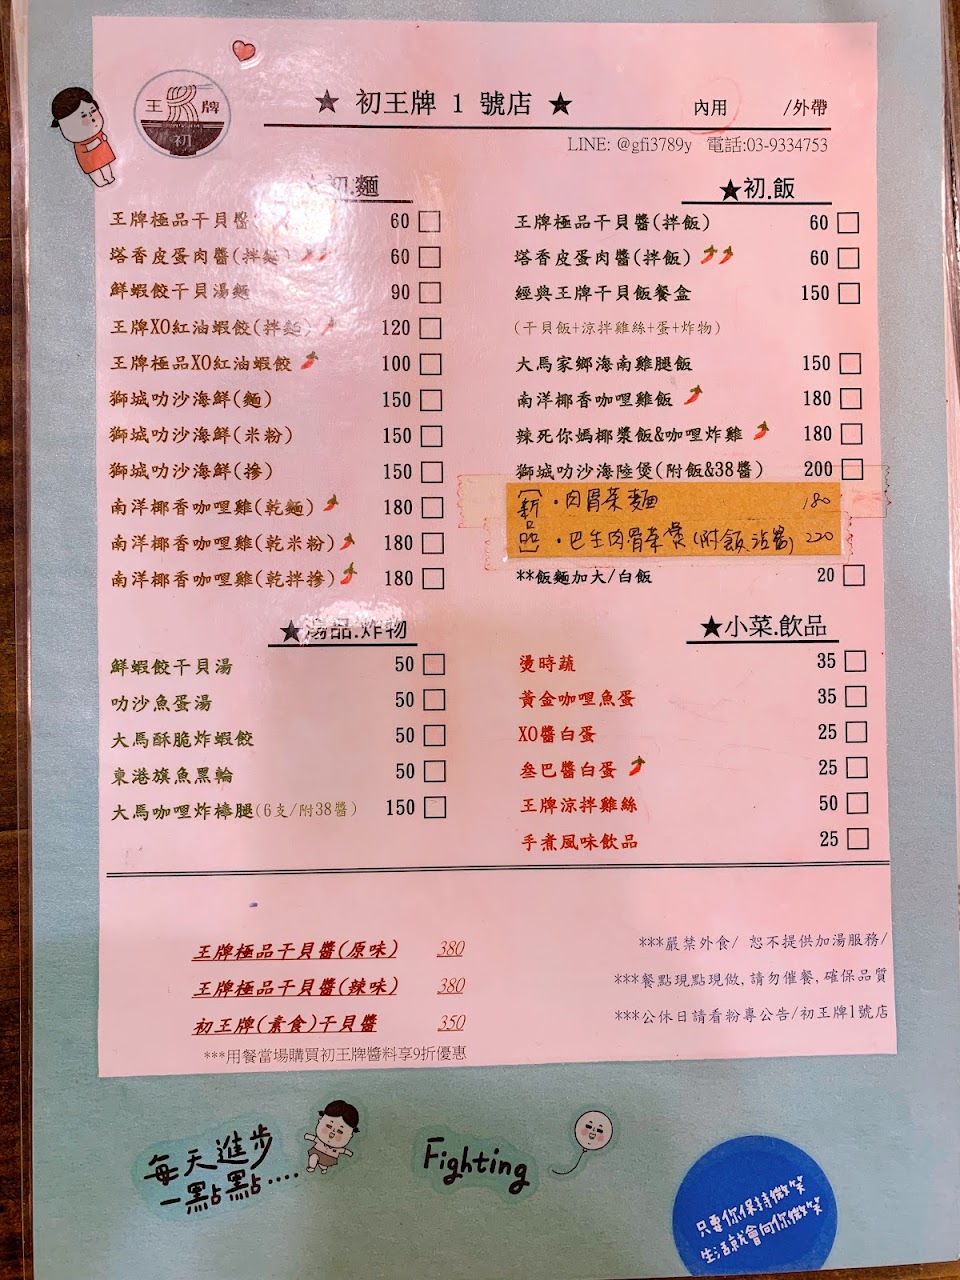 王 牌
初
★ 初王牌 1 號店 ★ 內用 /外帶
LINE: @gfi3789y 電話:03-9334753
初.麵
王牌極品干貝醬 60
塔香皮蛋肉醬(拌麵) 60
鮮蝦餃干貝湯麵 90
王牌XO紅油蝦餃(拌麵) 120
王牌極品XO紅油蝦餃 100
獅城叻沙海鮮(麵) 150
獅城叻沙海鮮(米粉) 150
獅城叻沙海鮮(摻) 150
南洋椰香咖哩雞(乾麵) 180
南洋椰香咖哩雞(乾米粉) 180
南洋椰香咖哩雞(乾拌摻) 180
★初.飯
王牌極品干貝醬(拌飯) 60
塔香皮蛋肉醬(拌飯) 60
經典王牌干貝飯餐盒 150
(干貝飯+涼拌雞絲+蛋+炸物)
大馬家鄉海南雞腿飯 150
南洋椰香咖哩雞飯 180
辣死你媽椰漿飯&咖哩炸雞 180
獅城叻沙海陸煲(附飯&38醬) 200
新品
·肉骨茶麵 180
·巴生肉骨茶煲(附飯沾醬) 220
**飯麵加大/白飯 20
★湯品.炸物
鮮蝦餃干貝湯 50
叻沙魚蛋湯 50
大馬酥脆炸蝦餃 50
東港旗魚黑輪 50
大馬咖哩炸棒腿(6支/附38醬) 150
★小菜.飲品
燙時蔬 35
黃金咖哩魚蛋 35
XO醬白蛋 25
叁巴醬白蛋 25
王牌涼拌雞絲 50
手煮風味飲品 25
王牌極品干貝醬(原味) 380
王牌極品干貝醬(辣味) 380
初王牌(素食)干貝醬 350
***用餐當場購買初王牌醬料享9折優惠
***嚴禁外食/ 恕不提供加湯服務/
***餐點現點現做,請勿催餐,確保品質
***公休日請看粉專公告/初王牌1號店
每天進步
一點點....
Fighting
只要你保持微笑
生活就會向你微笑